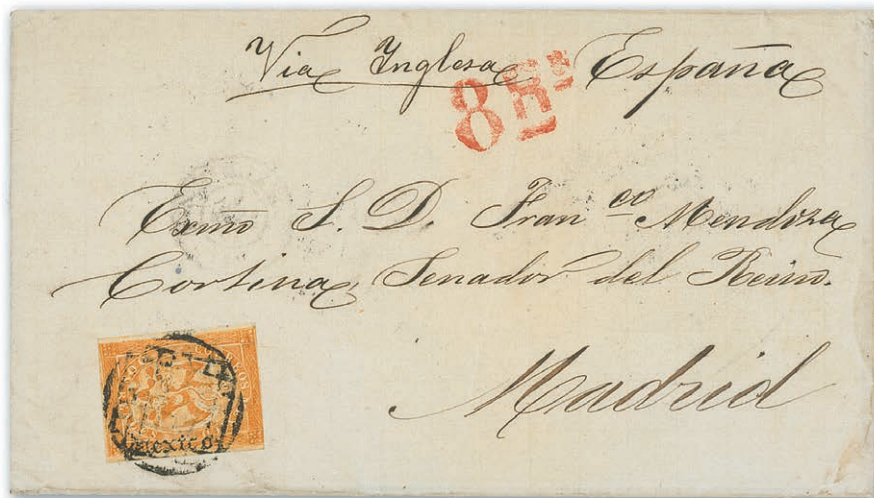 Via Inglesa España
8 Rs
Exmo S. D. Franco Mendoza
Cortina, Senador del Reino.
Madrid
Mexico